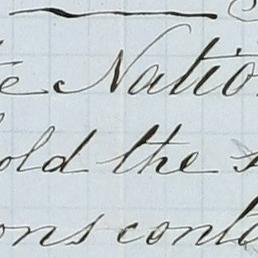 te Natio
hold the s
ons conta